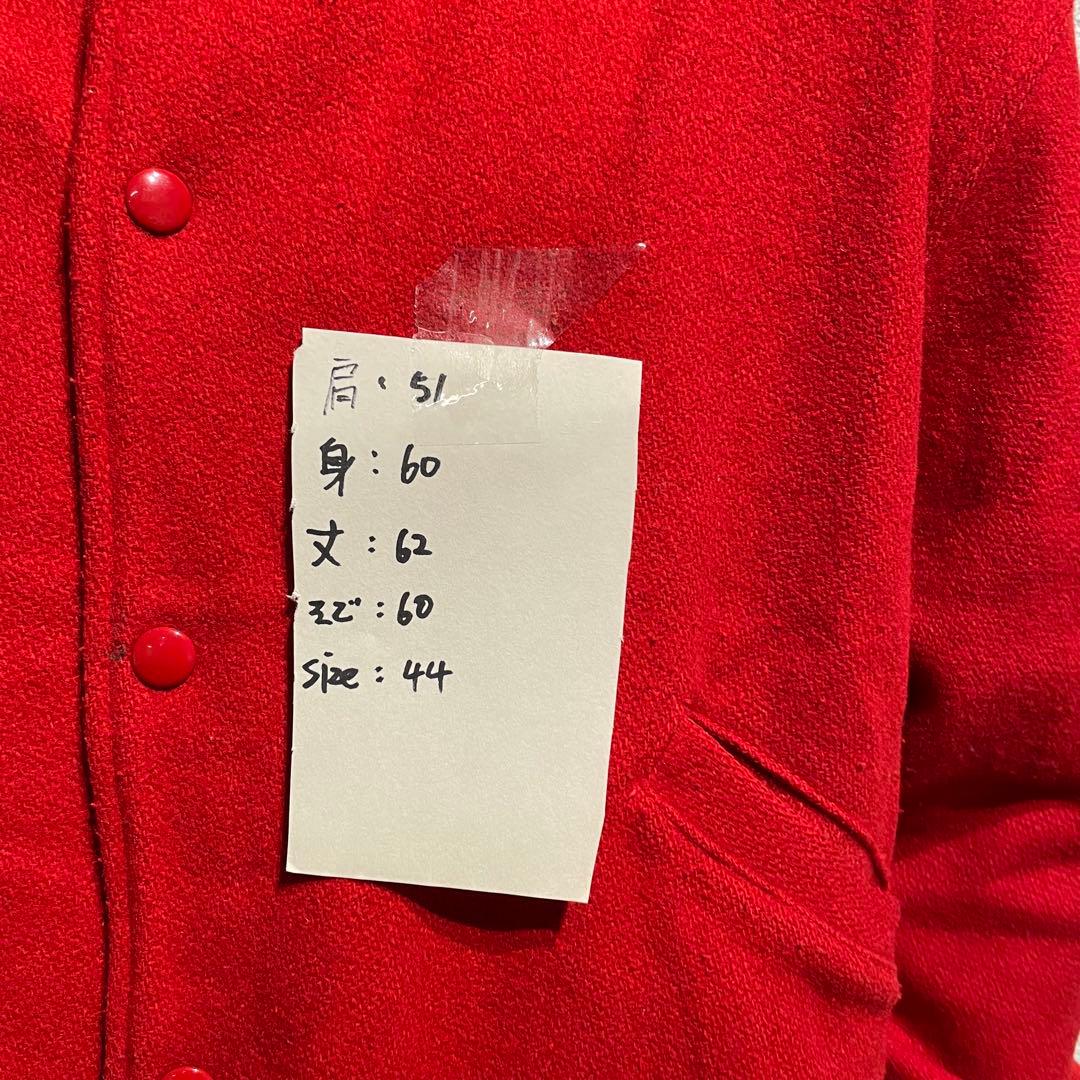 肩:51
身:60
丈:62
そで:60
size:44